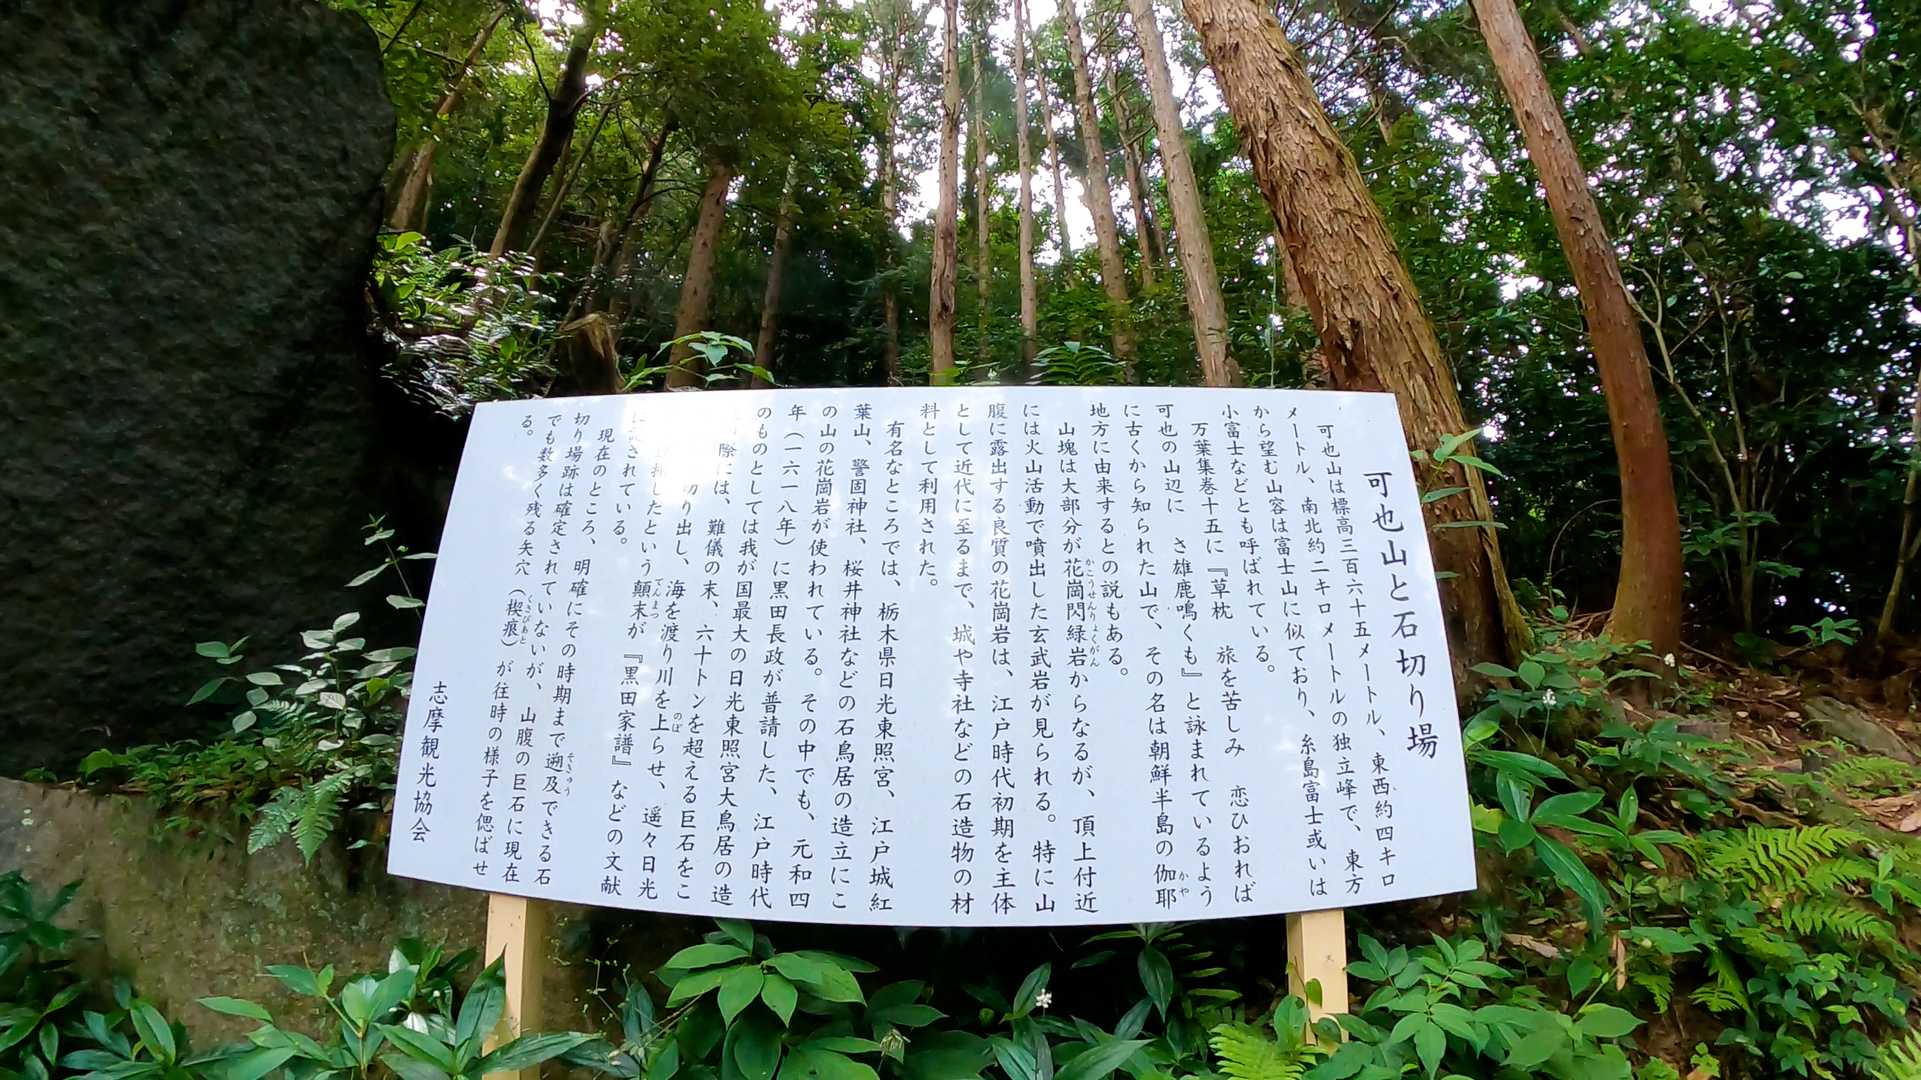 可也山と石切り場
可也山は標高三百六十五メートル、東西約四キロ
メートル、南北約二キロメートルの独立峰で、東方
から望む山容は富士山に似ており、糸島富士或いは
小富士などとも呼ばれている。
万葉集巻十五に『草枕 旅を苦しみ 恋ひおれば
可也の山辺に さ雄鹿鳴くも』と詠まれているよう
に古くから知られた山で、その名は朝鮮半島の伽耶
地方に由来するとの説もある。
山塊は大部分が花崗閃緑岩からなるが、頂上付近
には火山活動で噴出した玄武岩が見られる。特に山
腹に露出する良質の花崗岩は、江戸時代初期を主体
として近代に至るまで、城や寺社などの石造物の材
料として利用された。
有名なところでは、栃木県日光東照宮、江戸城紅
葉山、警固神社、桜井神社などの石鳥居の造立にこ
の山の花崗岩が使われている。その中でも、元和四
年（一六一八年）に黒田長政が普請した、江戸時代
のものとしては我が国最大の日光東照宮大鳥居の造
際には、難儀の末、六十トンを超える巨石をこ
切り出し、海を渡り川を上らせ、遥々日光
したという顛末が『黒田家譜』などの文献
に記されている。
現在のところ、明確にその時期まで遡及できる石
切り場跡は確定されていないが、山腹の巨石に現在
でも数多く残る矢穴（楔痕）が往時の様子を偲ばせ
る。
志摩観光協会